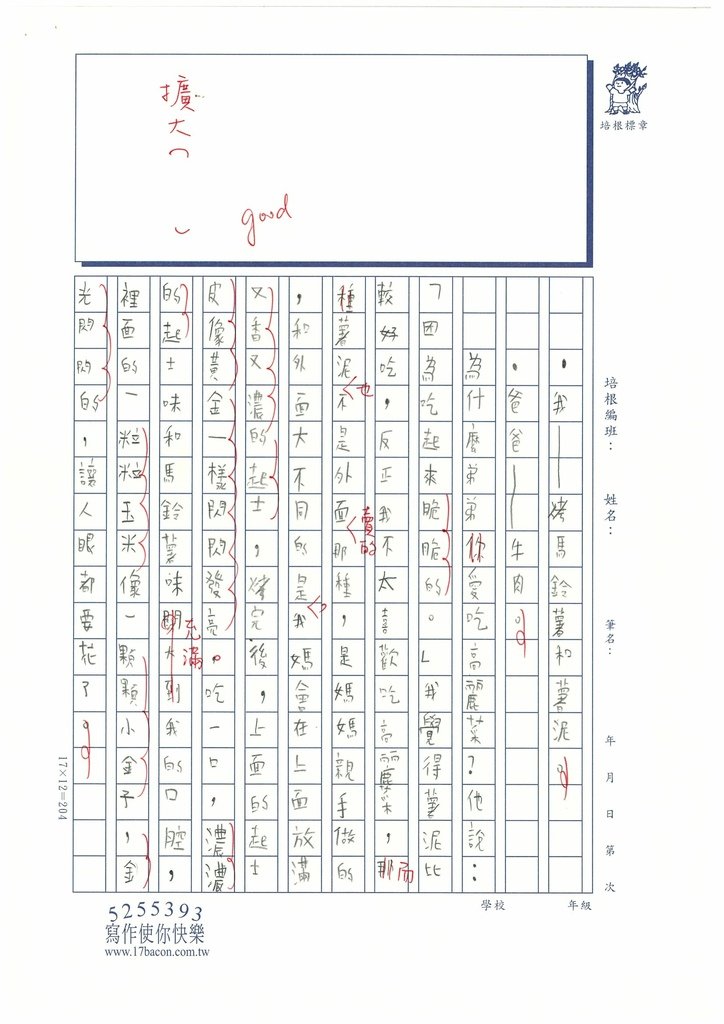 擴大（ ）
good
培根標章
培根編班： 姓名： 筆名： 年 月 日 第 次
．我——烤馬鈴薯和薯泥
．爸爸——牛肉
為什麼弟弟你愛吃高麗菜？他說：
「因為吃起來脆脆的。」我覺得薯泥比
較好吃，反正我不太喜歡吃高麗菜，那而
種薯泥不也是外面賣的那種，是媽媽親手做的
，和外面大不同的是我媽會在上面放滿
又香又濃的起士，烤完後，上面的起士
皮像黃金一樣閃閃發亮。吃一口，濃濃
的起士味和馬鈴薯味充滿到我的口腔，
裡面的一粒粒玉米像一顆顆小金子，金
光閃閃的，讓人眼都要花了
17×12=204
學校 年級
5255393
寫作使你快樂
www.17bacon.com.tw